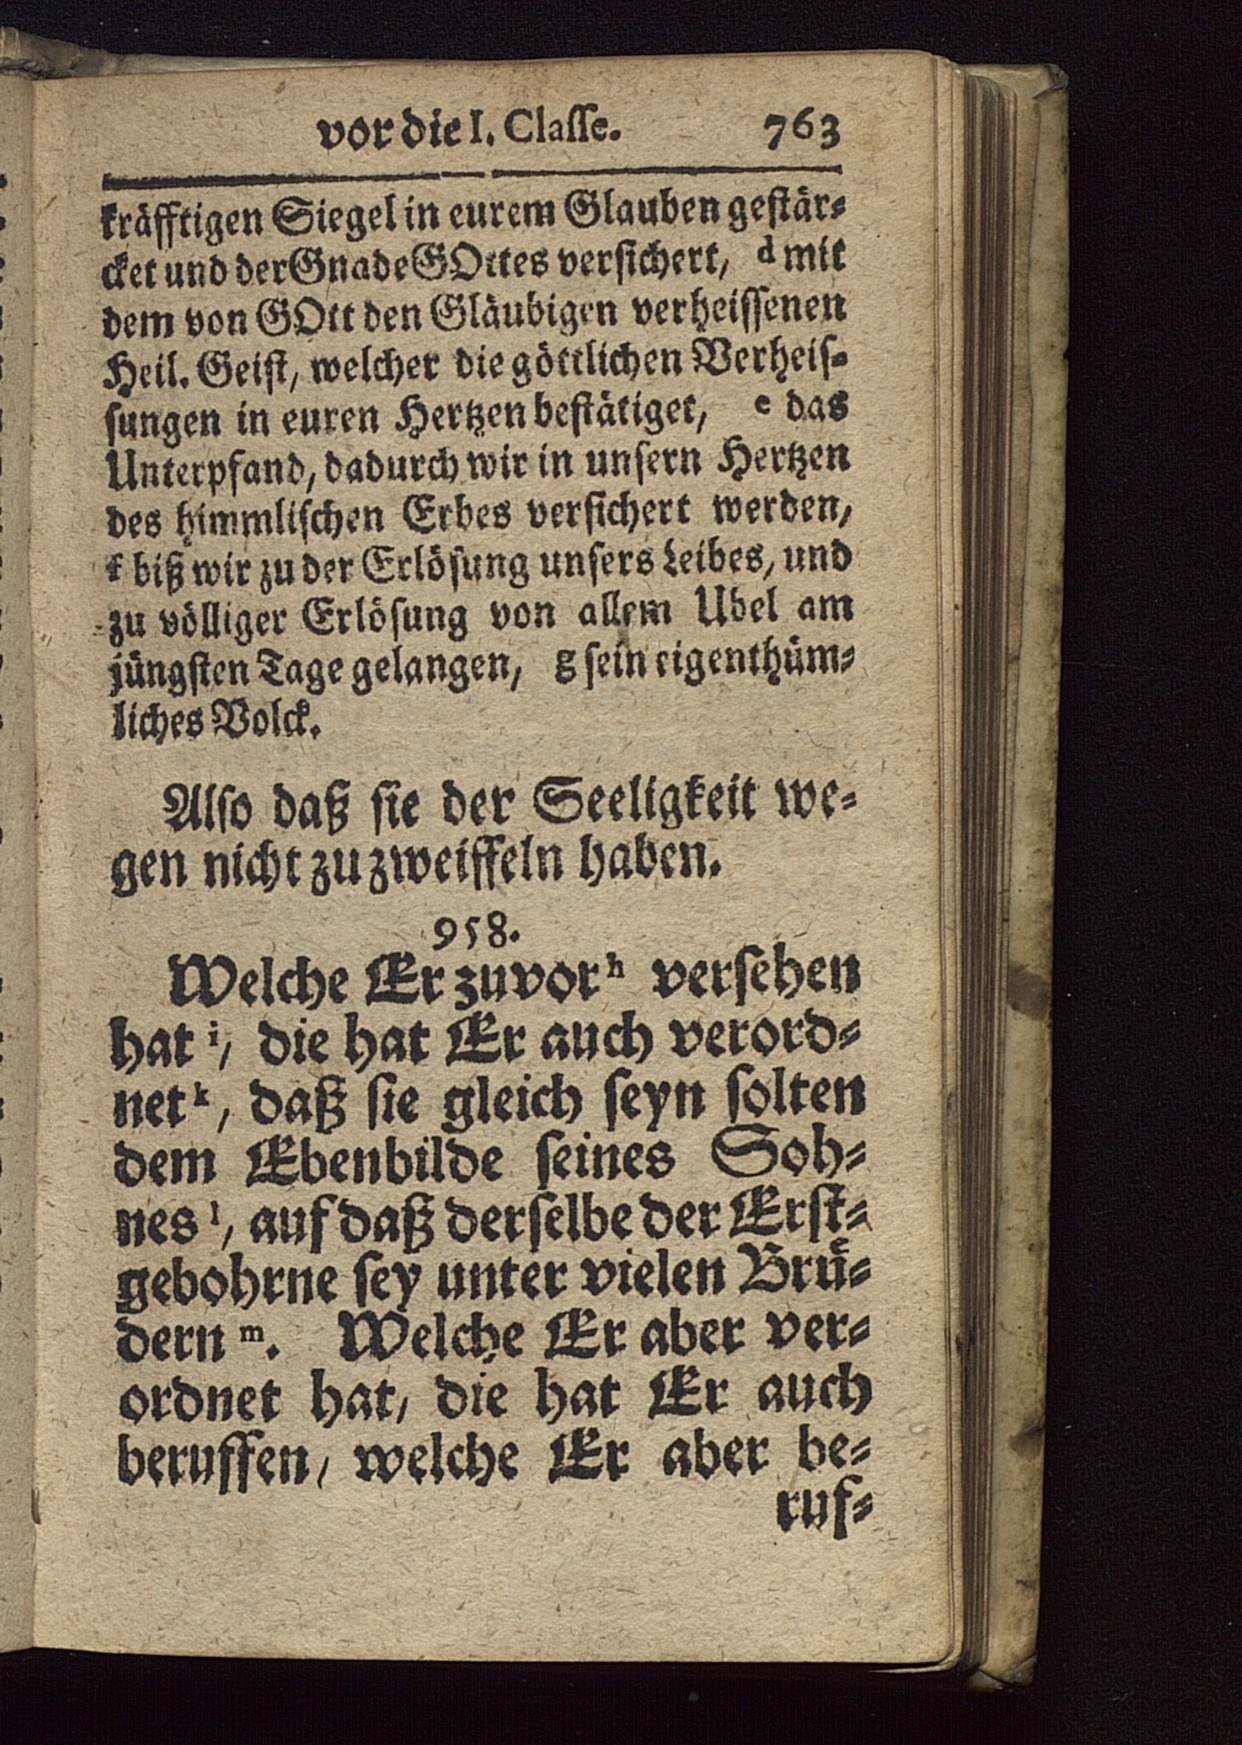 vor die I. Classe. 763
kräfftigen Siegel in eurem Glauben gestär-
cket und der Gnade GOttes versichert, d mit
dem von GOtt den Gläubigen verheissenen
Heil. Geist, welcher die göttlichen Verheis-
sungen in euren Hertzen bestätiget, e das
Unterpfand, dadurch wir in unsern Hertzen
des himmlischen Erbes versichert werden,
f biß wir zu der Erlösung unsers Leibes, und
zu völliger Erlösung von allem Ubel am
jüngsten Tage gelangen, g sein eigenthüm-
liches Volck.
Also daß sie der Seeligkeit we-
gen nicht zu zweiffeln haben.
958.
Welche Er zuvor h versehen
hat i, die hat Er auch verord-
net k, daß sie gleich seyn solten
dem Ebenbilde seines Soh-
nes l, auf daß derselbe der Erst-
gebohrne sey unter vielen Brü-
dern m. Welche Er aber ver-
ordnet hat, die hat Er auch
beruffen, welche Er aber be-
ruf-